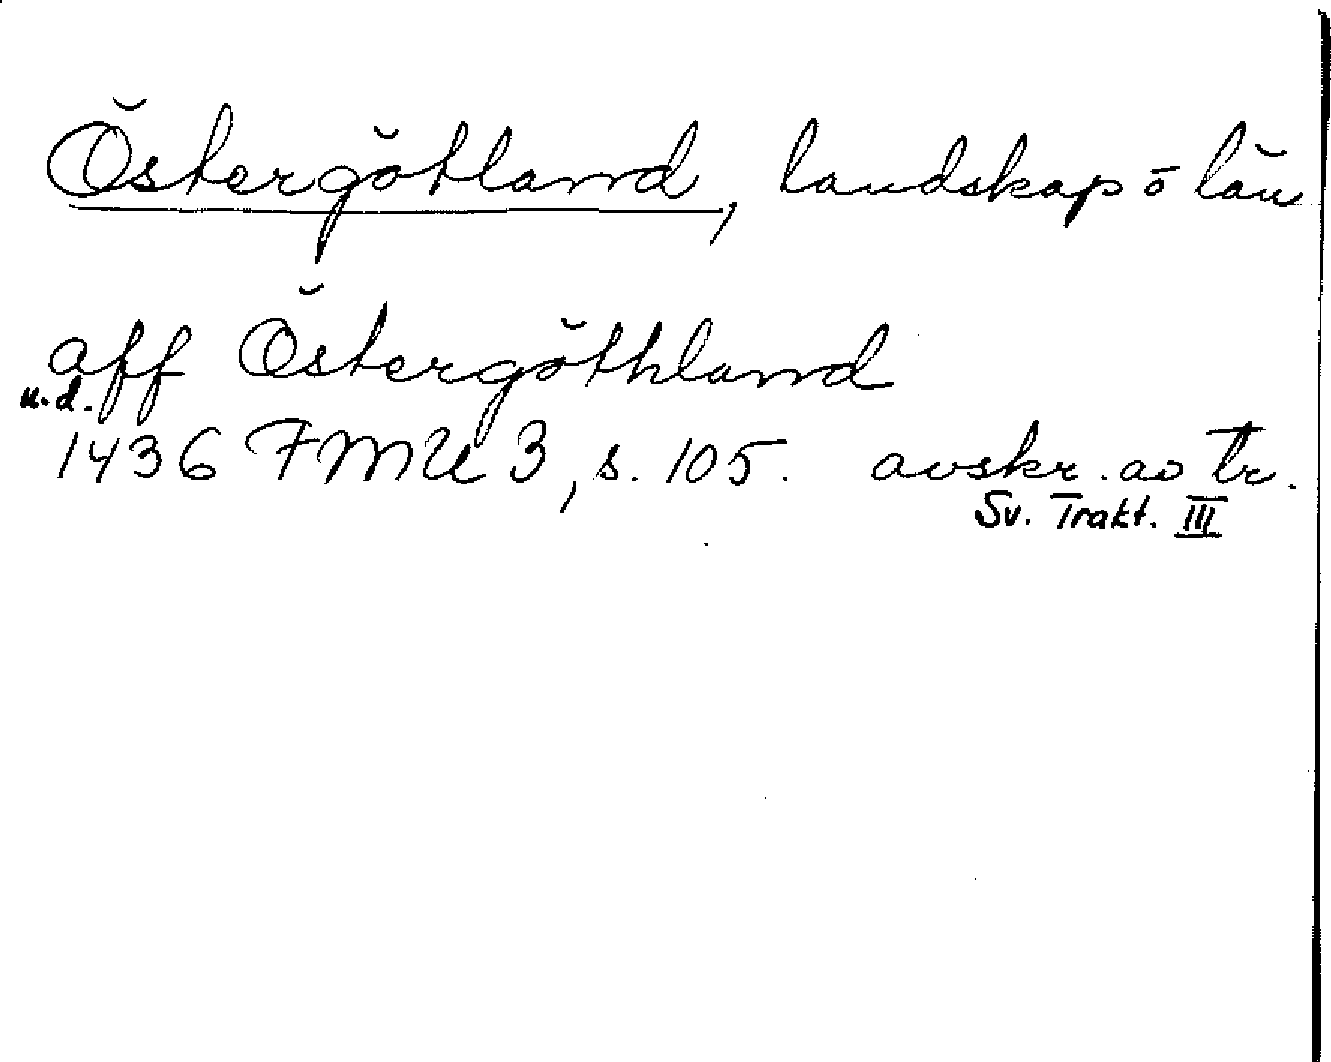 Östergötland, landskap o län
aff Östergöthland
u.d.
1436 FMU 3, s. 105. avskr. av tr.
Sv. Trakt. III